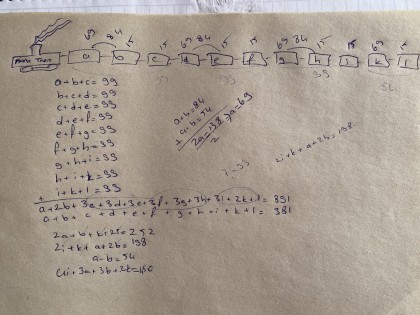 69 84 15 15 69 84 15 69 84 15 15 69 15
a b c d e f g h i k l
a+b+c=99
b+c+d=99
c+d+e=99
d+e+f=99
e+f+g=99
f+g+h=99
g+h+i=99
h+i+k=99
i+k+l=99
+
a+2b+3c+3d+3e+3f+3g+3h+3i+2k+l=891
a+b+c+d+e+f+g+h+i+k+l=381
2a+b+k+2i=252
2i+k+a+2b=198
a-b=54
4i+3a+3b+2k=450
a+b=84
a-b=54
+
2a=138 => a=69
2
2i+k+a+2b=198
99